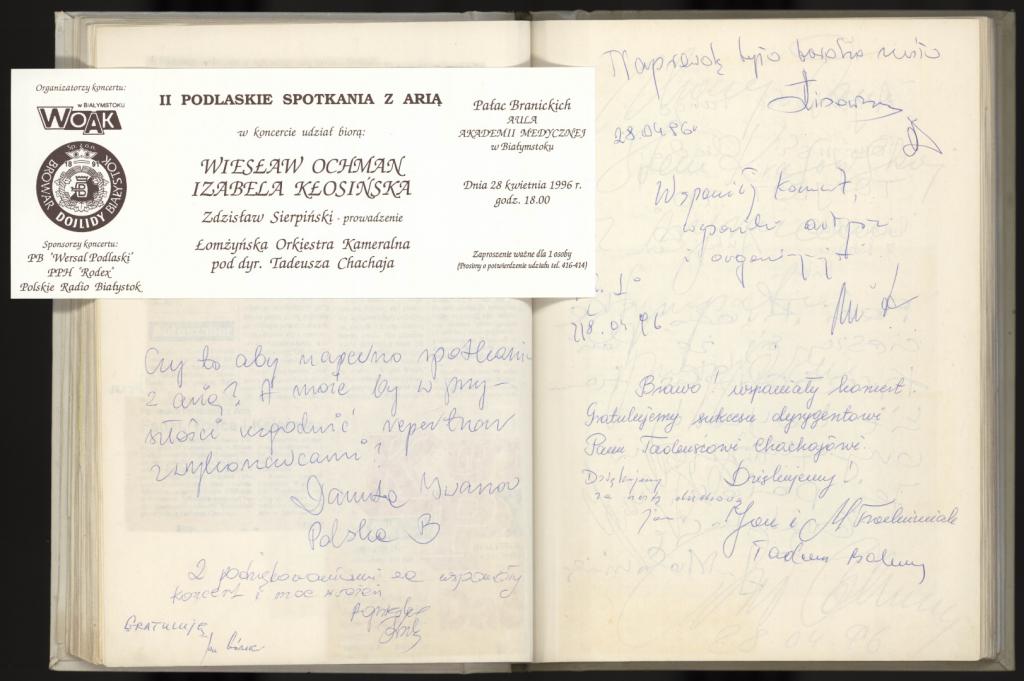 Organizatorzy koncertu:
w BIAŁYMSTOKU
WOAK
Sp. z o.o.
BROWAR DOJLIDY BIAŁYSTOK
Sponsorzy koncertu:
PB "Wersal Podlaski"
PPH "Rodex"
Polskie Radio Białystok
II PODLASKIE SPOTKANIA Z ARIĄ
w koncercie udział biorą:
WIESŁAW OCHMAN
IZABELA KŁOSIŃSKA
Zdzisław Sierpiński - prowadzenie
Łomżyńska Orkiestra Kameralna
pod dyr. Tadeusza Chachaja
Pałac Branickich
AULA
AKADEMII MEDYCZNEJ
w Białymstoku
Dnia 28 kwietnia 1996 r.
godz. 18.00
Zaproszenie ważne dla 1 osoby
(Prosimy o potwierdzenie udziału tel. 416-414)
Czy to aby napewno spotkanie
z arią? A może by w przy-
szłości uzgodnić repertuar
z wykonawcami?
Danuta Iwanow
Polska B
Z podziękowaniami za wspaniały
koncert i moc wrażeń
Agnieszka
GRATULUJĘ
Jan
Naprawdę było bardzo miło
28.04.96
Wspaniały koncert,
wspaniali artyści
i organizatorzy
28.04.96
Brawo! wspaniały koncert!
Gratulujemy sukcesu dyrygentowi
Panu Tadeuszowi Chachajowi.
Dziękujemy!
Dziękujemy
za
Jan i M
Tadeusz